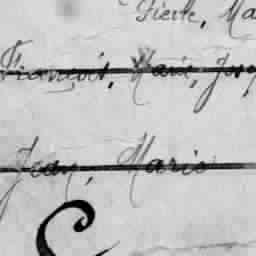 Pierre, Ma
François, Marie, Josep
Jean, Marie